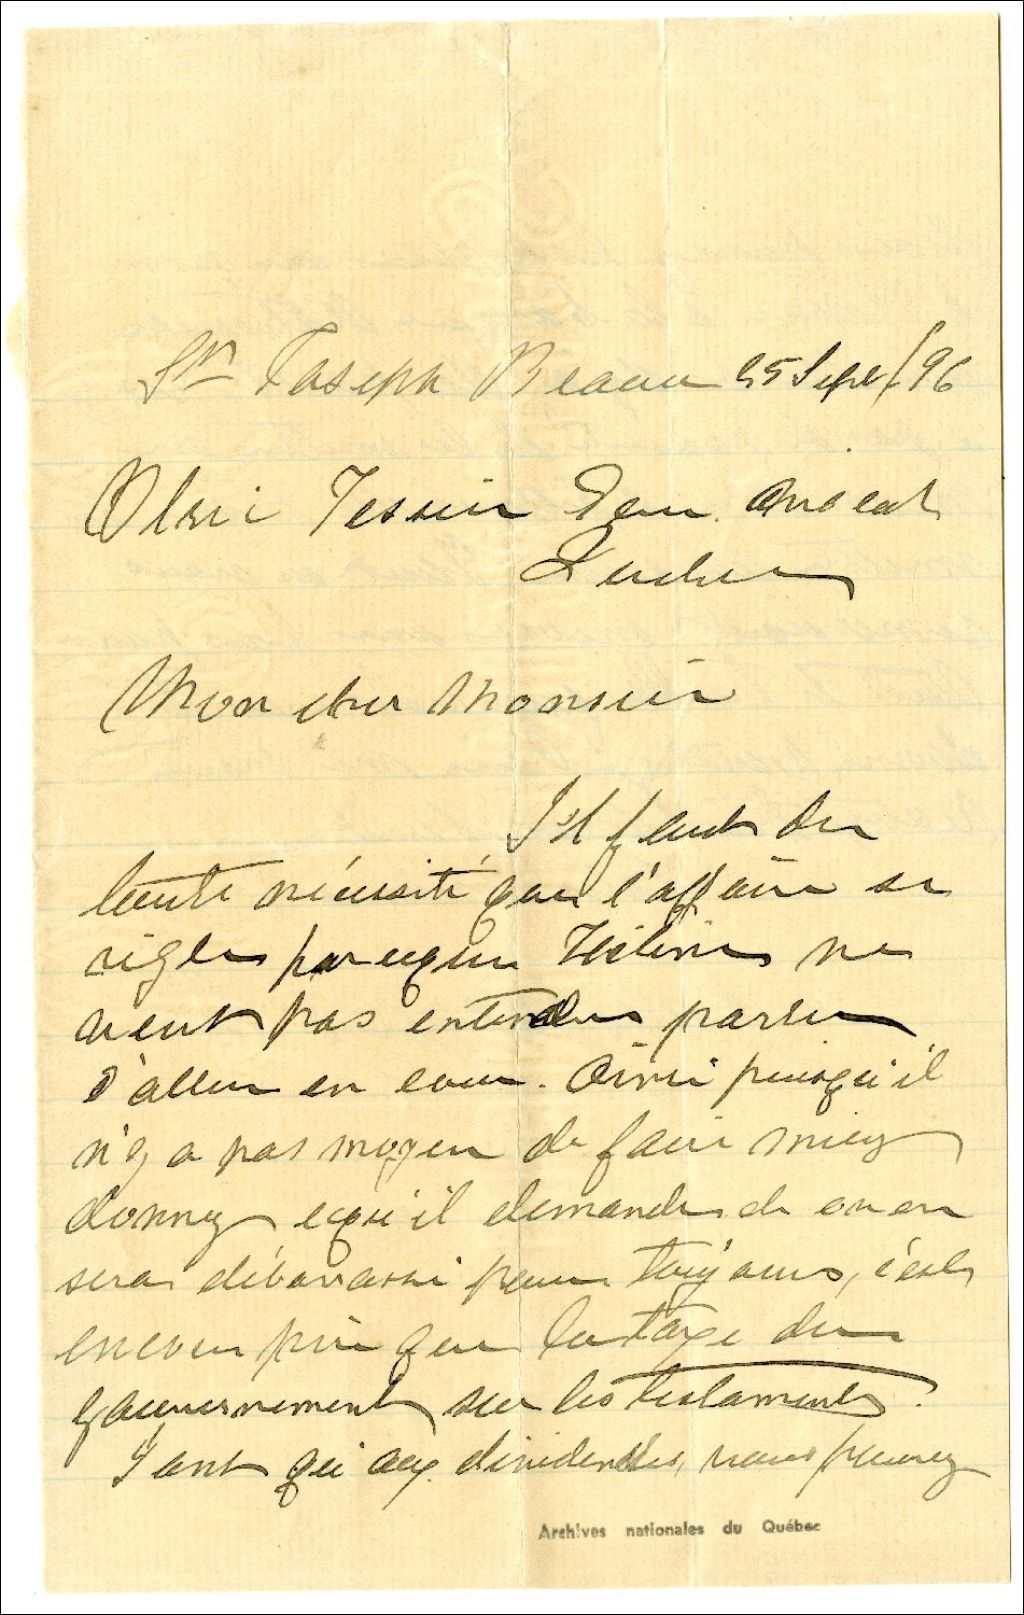 St Joseph Beauce 25 Sept/96
Ulric Tessier Ecr. Avocat
Québec
Mon cher Monsieur
Il faut de
toute nécéssité que l'affaire se
règle parceque Hélène ne
veut pas entendre parler
d'aller en cour. Ainsi puisqu'il
n'y a pas moyen de faire mieux
donnez ce qu'il demande on en
sera débarrassé pour toujours, c'est
encore pire que la taxe du
gouvernement sur les testaments.
Tant qu'aux dividendes, vous pouvez
Archives nationales du Québec